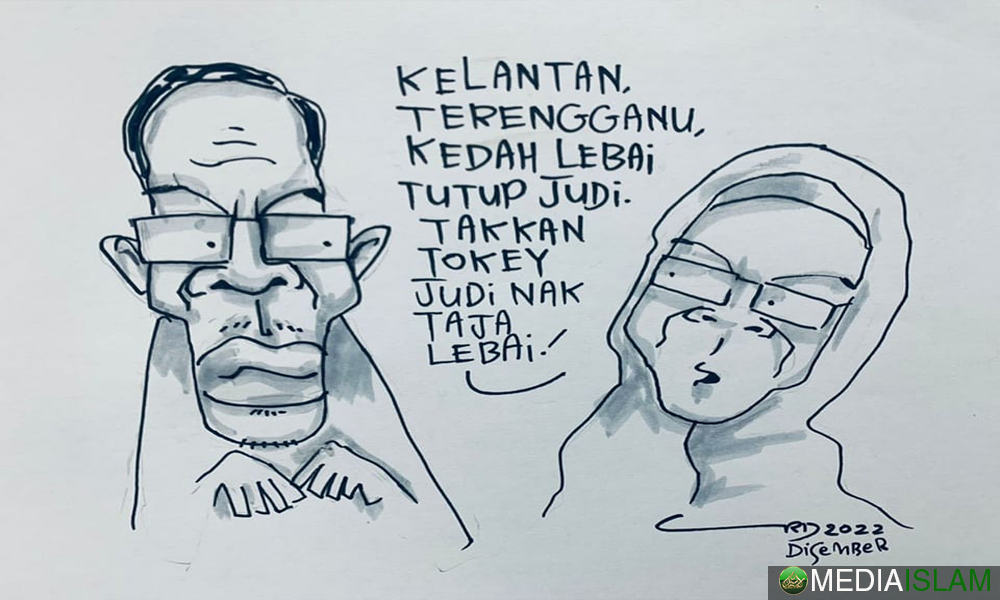 KELANTAN,
TERENGGANU,
KEDAH LEBAi
TUTUP JUDi.
TAKKAN
TOKEY
JUDi NAK
TAJA
LEBAi.!
RD 2022
DiSEMBER
MEDIAISLAM